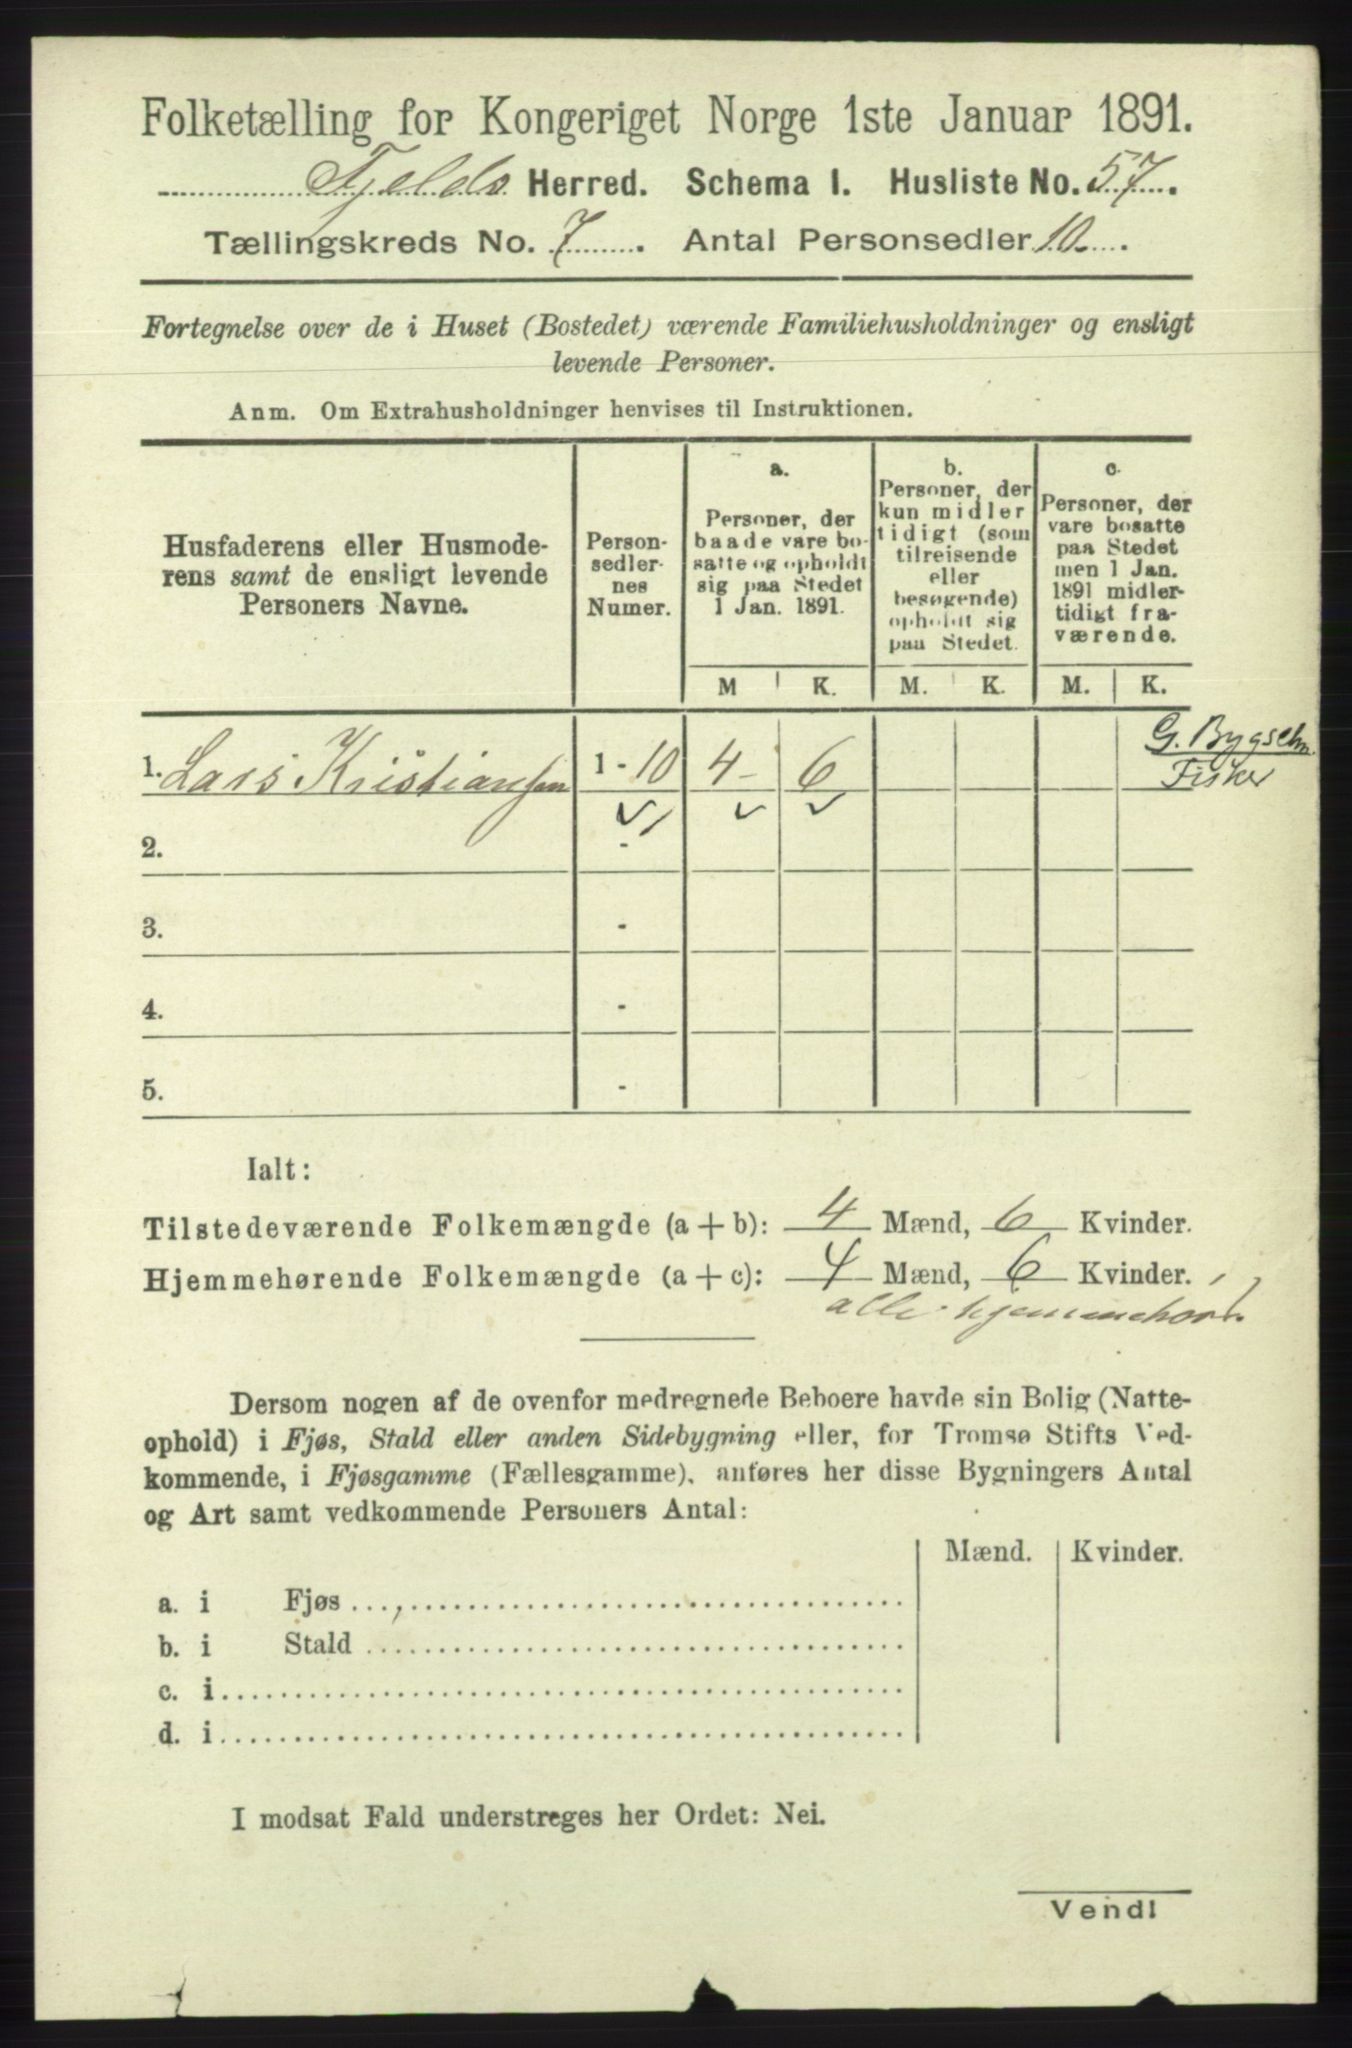 Folketælling for Kongeriget Norge 1ste Januar 1891.
Fjelds Herred. Schema I. Husliste No. 57.
Tællingskreds No. 7. Antal Personsedler 10.
Fortegnelse over de i Huset (Bostedet) værende Familiehusholdninger og ensligt
levende Personer.
Anm. Om Extrahusholdninger henvises til Instruktionen.
Husfaderens eller Husmode-
rens samt de ensligt levende
Personers Navne.
Person-
sedler-
nes
Numer.
a.
Personer, der
baade vare bo-
satte og opholdt
sig paa Stedet
1 Jan. 1891.
b.
Personer, der
kun midler
tidigt (som
tilreisende
eller
besøgende)
opholdt sig
paa Stedet.
c.
Personer, der
vare bosatte
paa Stedet
men 1 Jan.
1891 midler-
tidigt fra-
værende.
M K. M. K. M. K.
1. Lars Kristiansen 1 - 10 4 - 6 G. Bygselm.
Fisker
2. -
3. -
4. -
5. -
Ialt:
Tilstedeværende Folkemængde (a + b): 4 Mænd, 6 Kvinder.
Hjemmehørende Folkemængde (a + c): 4 Mænd, 6 Kvinder.
alle hjemmehør.
Dersom nogen af de ovenfor medregnede Beboere havde sin Bolig (Natte-
ophold) i Fjøs, Stald eller anden Sidebygning eller, for Tromsø Stifts Ved-
kommende, i Fjøsgamme (Fællesgamme), anføres her disse Bygningers Antal
og Art samt vedkommende Personers Antal:
Mænd. Kvinder.
a. i Fjøs
b. i Stald
c. i
d. i
I modsat Fald understreges her Ordet: Nei.
Vend!